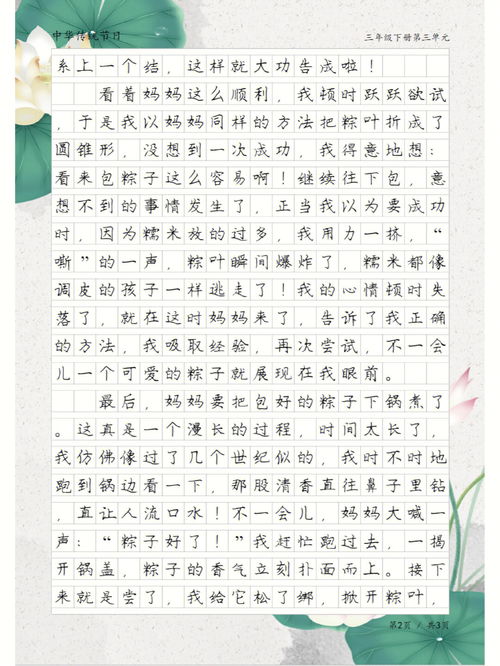 中华传统节日
三年级下册第三单元
系上一个结，这样就大功告成啦！
看着妈妈这么顺利，我顿时跃跃欲试
，于是我以妈妈同样的方法把粽叶折成了
圆锥形，没想到一次成功，我得意地想：
看来包粽子这么容易啊！继续往下包，意
想不到的事情发生了，正当我以为要成功
时，因为糯米放的过多，我用力一挤，“
嘶”的一声，粽叶瞬间爆炸了，糯米都像
调皮的孩子一样逃走了！我的心情顿时失
落了，就在这时妈妈来了，告诉了我正确
的方法，我吸取经验，再次尝试，不一会
儿一个可爱的粽子就展现在我眼前。
最后，妈妈要把包好的粽子下锅煮了
。这真是一个漫长的过程，时间太长了，
我仿佛像过了几个世纪似的，我时不时地
跑到锅边看一下，那股清香直往鼻子里钻
，直让人流口水！不一会儿，妈妈大喊一
声：“粽子好了！”我赶忙跑过去，一揭
开锅盖，粽子的香气立刻扑面而上。接下
来就是尝了，我给它松了绑，掀开粽叶，
第2页 / 共3页